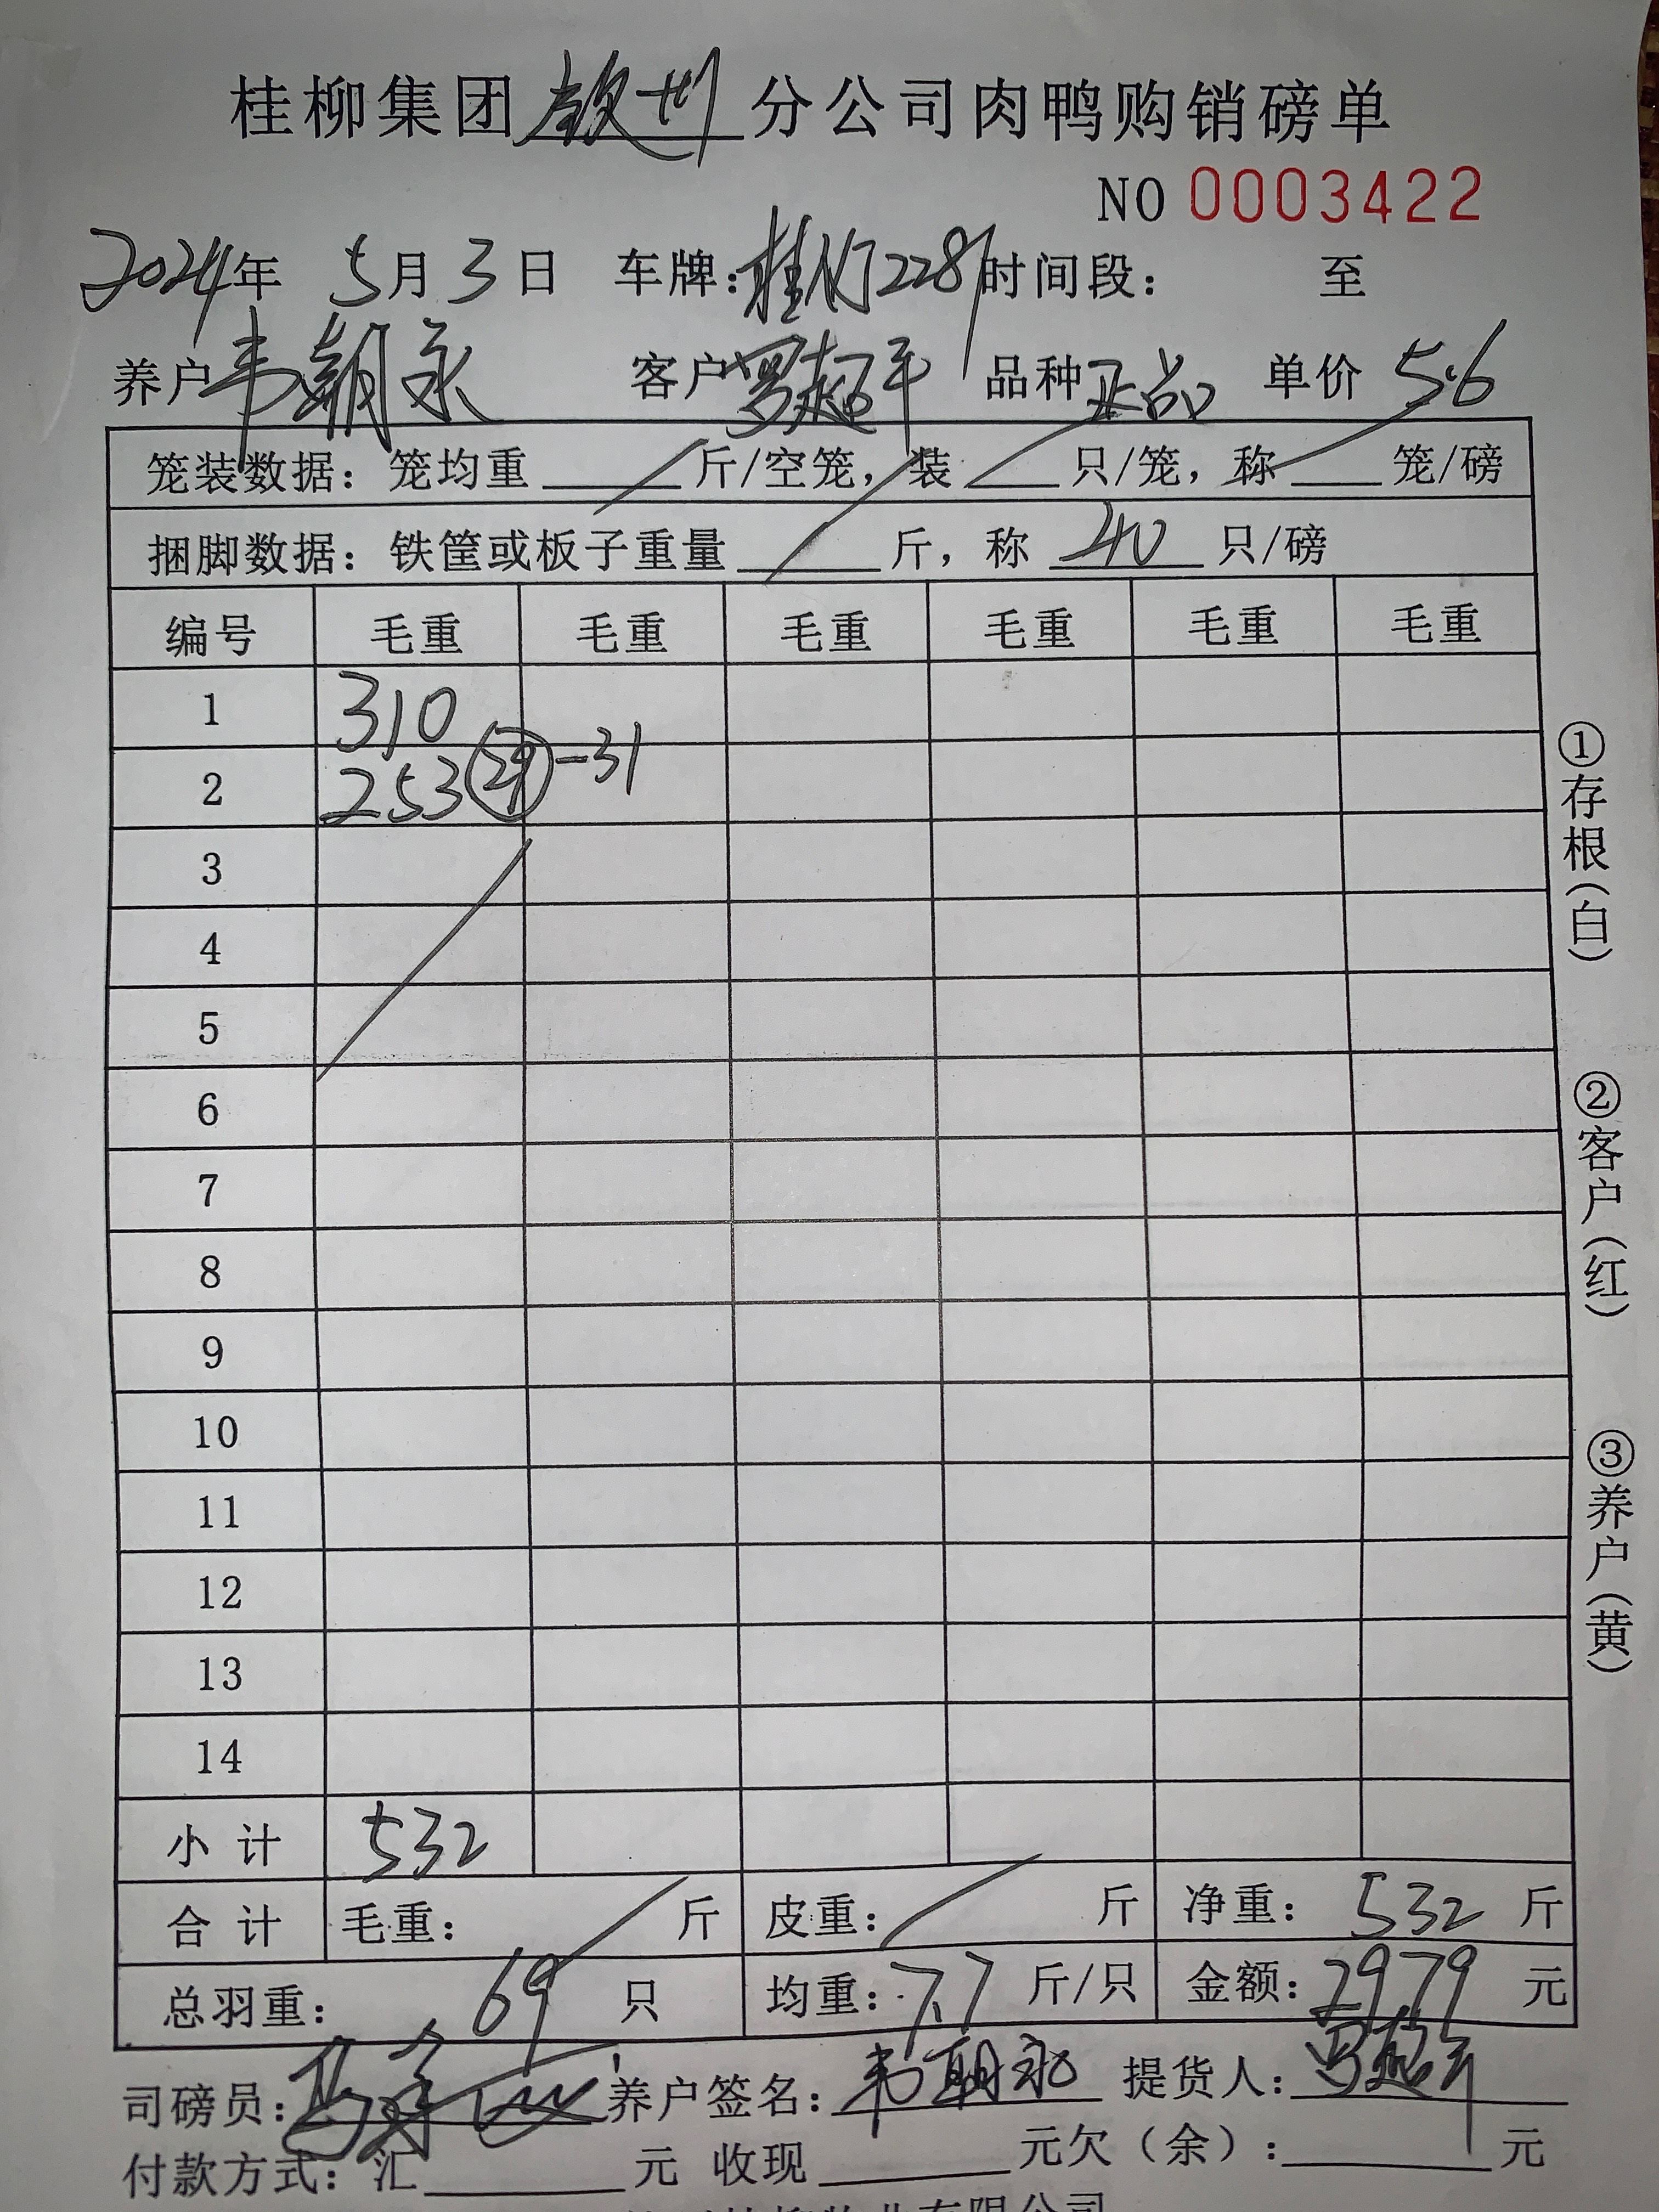 桂柳集团 钦州 分公司肉鸭购销磅单
NO 0003422
2024年 5月 3日 车牌: 桂N 时间段: 至
养户 韦朝永 客户 罗超平 品种 正品 单价 5.6
笼装数据: 笼均重 斤/空笼, 装 只/笼, 称 笼/磅
捆脚数据: 铁筐或板子重量 斤, 称 40 只/磅
编号 毛重 毛重 毛重 毛重 毛重 毛重
1 310
2 253 29 -31
3
4
5
6
7
8
9
10
11
12
13
14
小计 532
合计 毛重: 斤 皮重: 斤 净重: 532 斤
总羽重: 69 只 均重: 7.7 斤/只 金额: 2979 元
司磅员: 养户签名: 韦朝永 提货人: 罗超平
付款方式: 汇 元 收现 元欠(余): 元
①存根(白)
②客户(红)
③养户(黄)